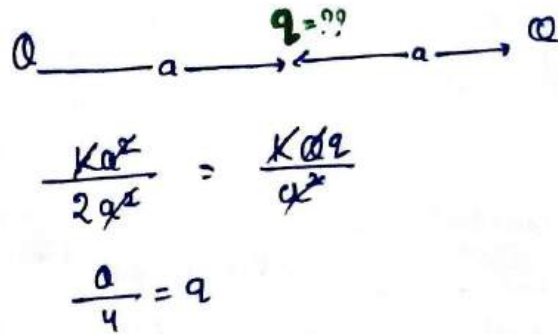 q = ??
Q a a Q
KQ² / 2a² = KQq / a²
Q / 4 = q